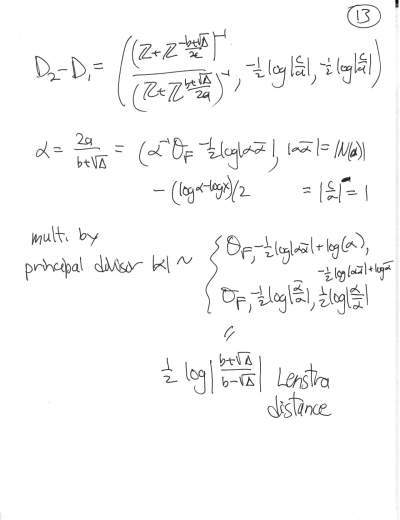 13
D₂-D₁ = ( (ℤ+ℤ (-b+√Δ)/2c)⁻¹ / (ℤ+ℤ (b+√Δ)/2a)⁻¹ , -½ log|c/a|, -½ log|c/a| )
α = 2a/(b+√Δ) = (α⁻¹ O_F -½ log|αᾱ|, |αᾱ| = |N(α)|
- (log α-log x)/2 = |c/a| = 1
multi. by
principal divisor |α| ~ { O_F, -½ log|αᾱ| + log(α),
-½ log|αᾱ| + log ᾱ
O_F, -½ log|ᾱ/α|, ½ log|ᾱ/α|
=
½ log |(b+√Δ)/(b-√Δ)| Lenstra
distance